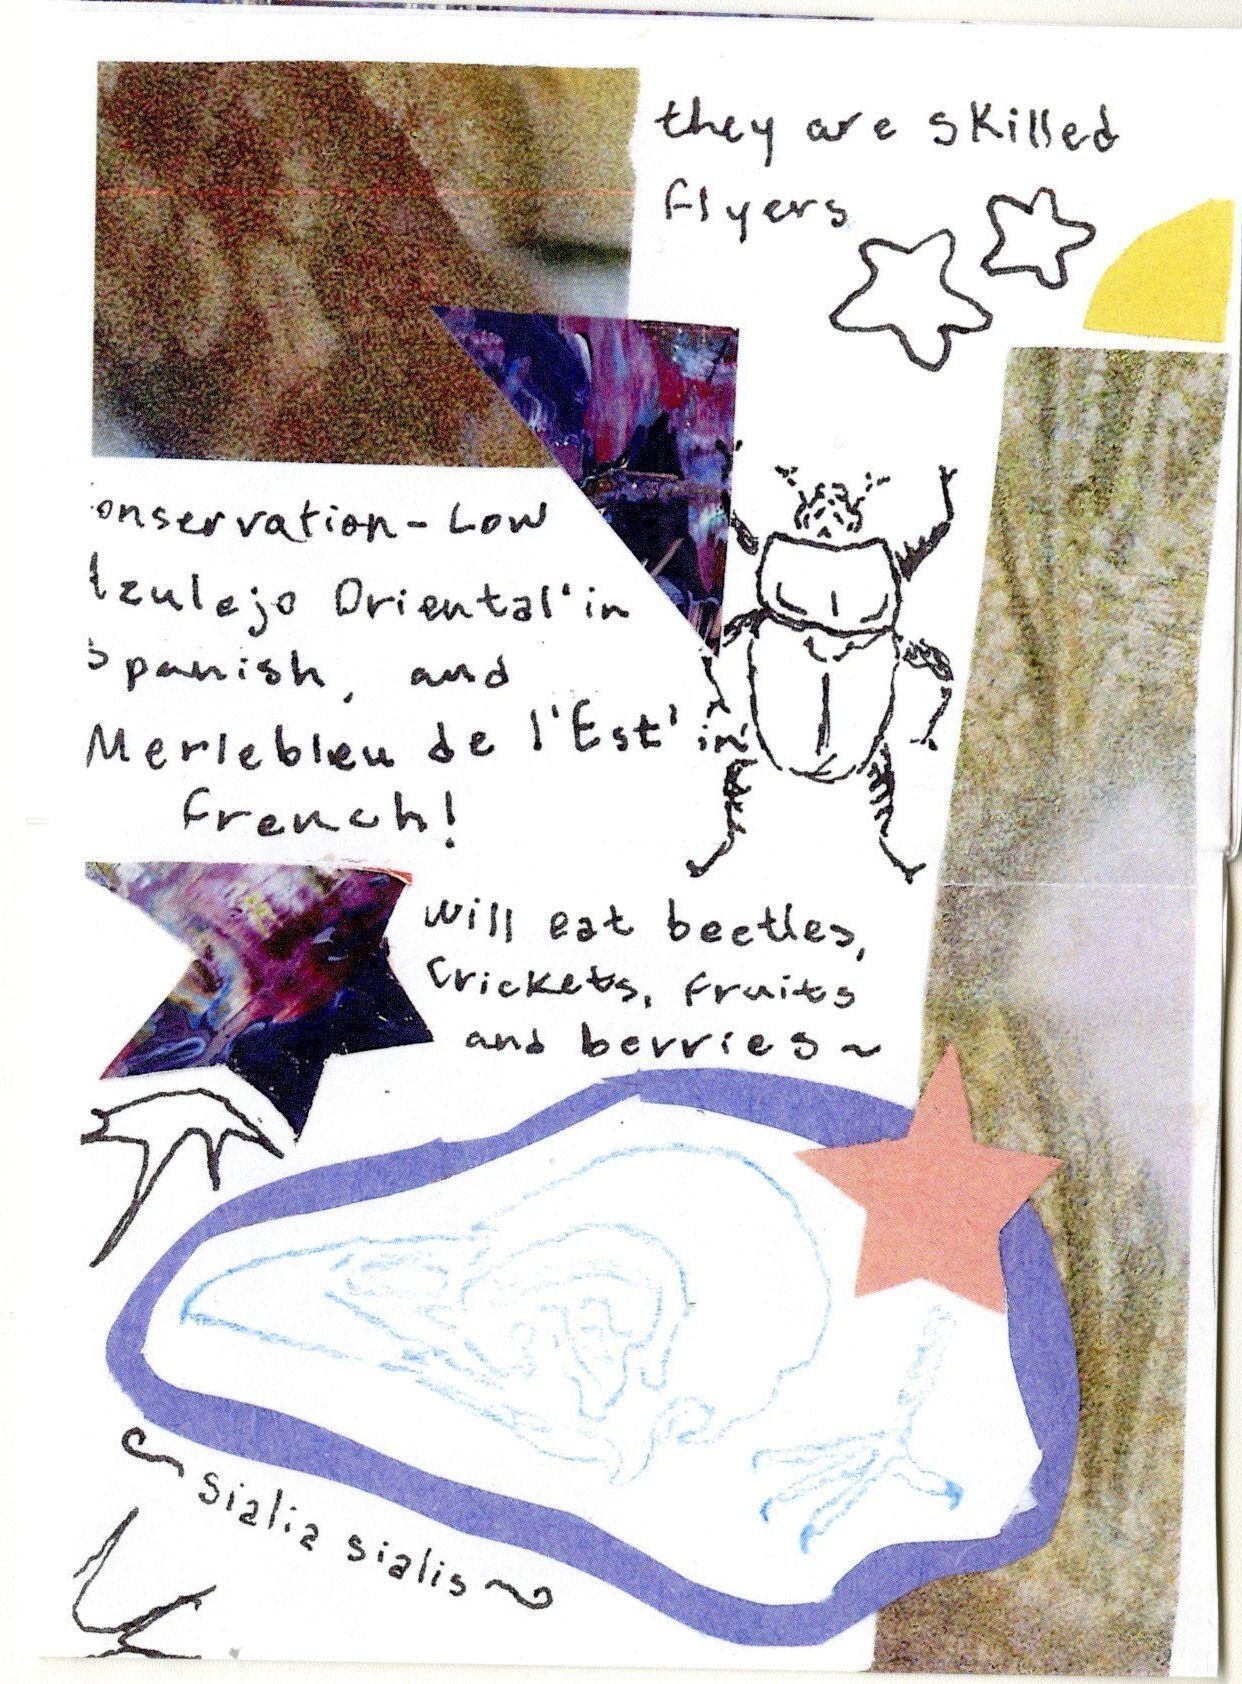 they are skilled
flyers
onservation - Low
zulejo Oriental' in
Spanish, and
Merlebleu de l'Est' in
French!
will eat beetles,
Crickets, fruits
and berries ~
~ sialia sialis ~